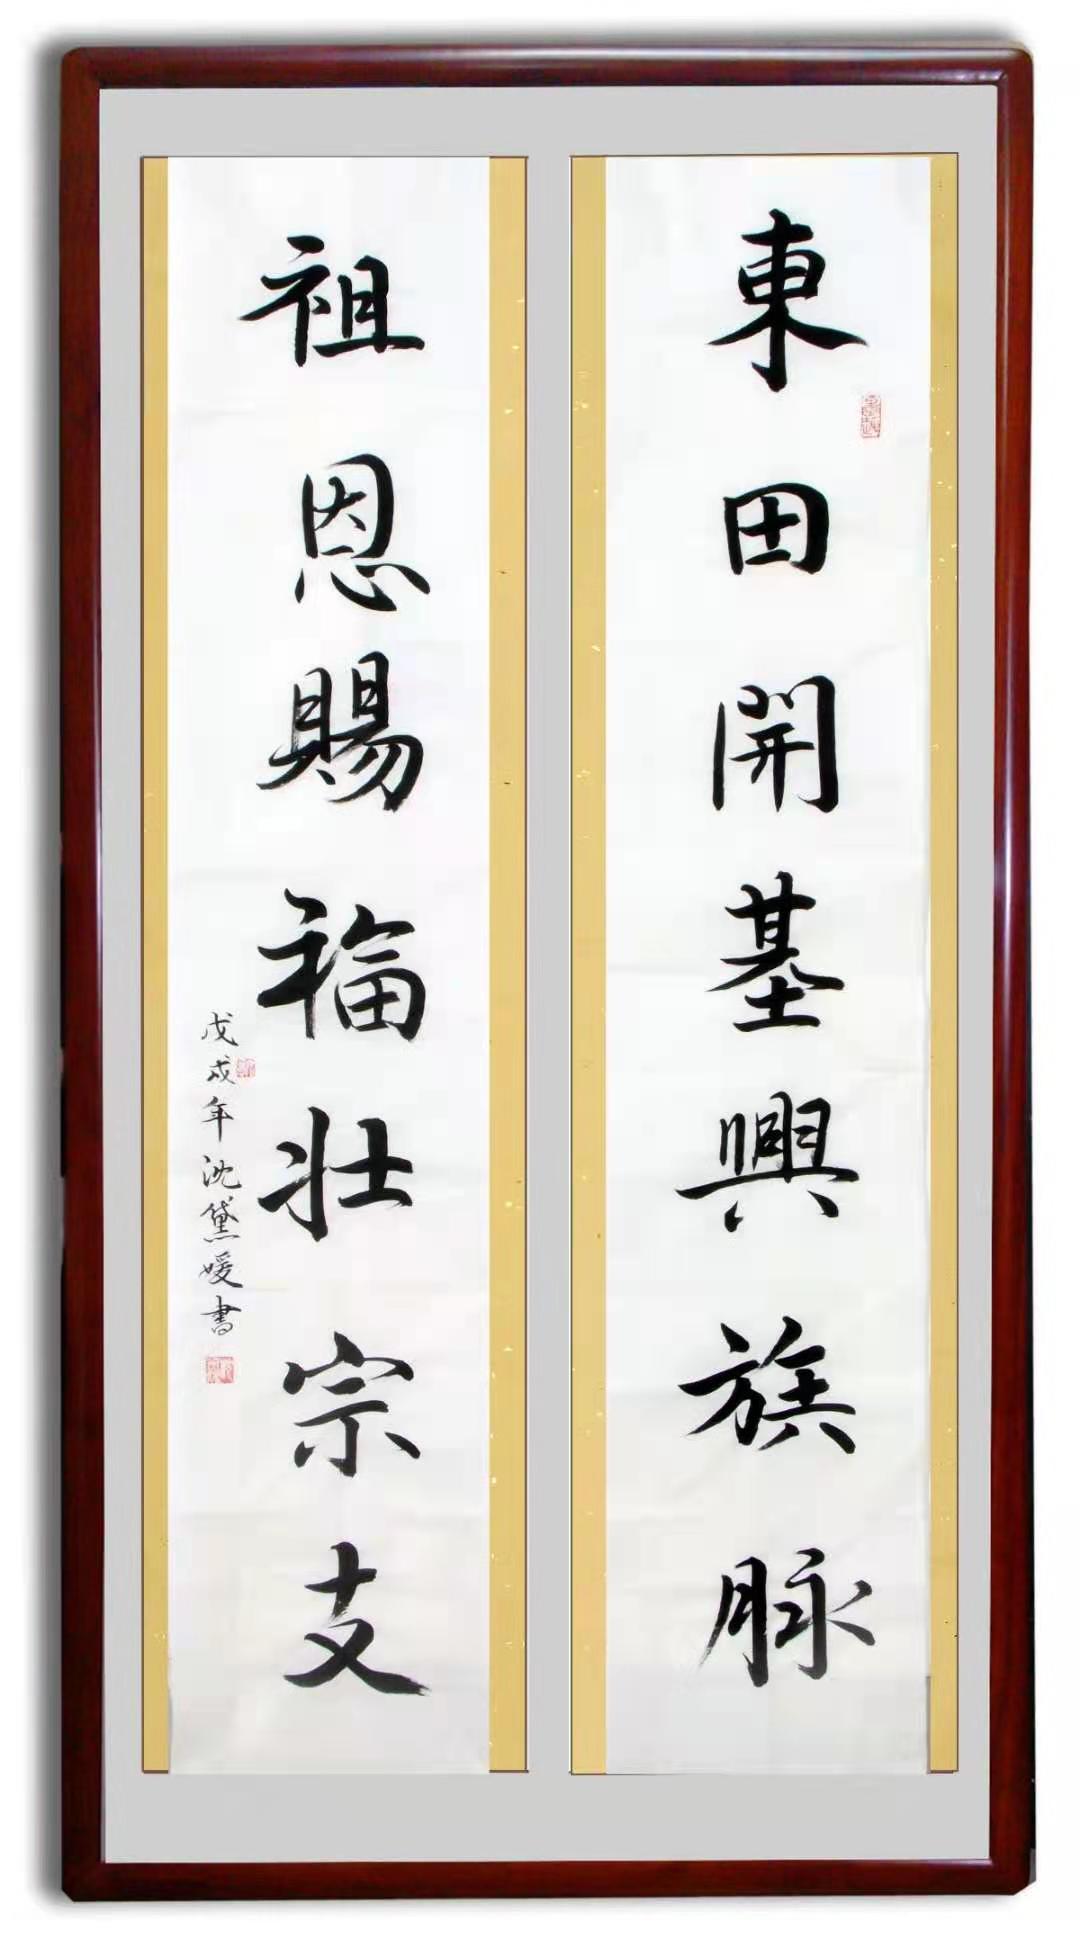 東田開基興族脉
祖恩賜福壯宗支
戊戌年沈黛媛書